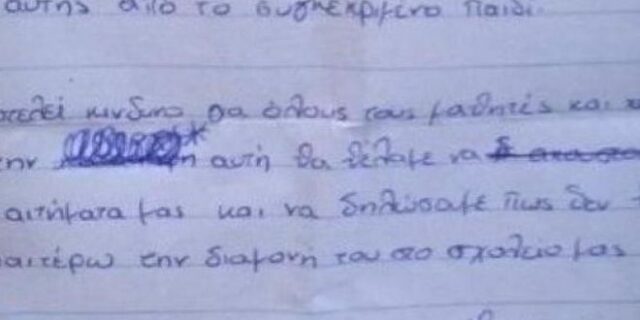 αυτής από το συγκεκριμένο παιδί.
οτελεί κινδυνο για όλους τους μαθητές και
ην αυτή θα θέλαμε να
αιτήματα μας και να δηλώσουμε πως δεν
αιτέρω την διαμονή του στο σχολείο μας